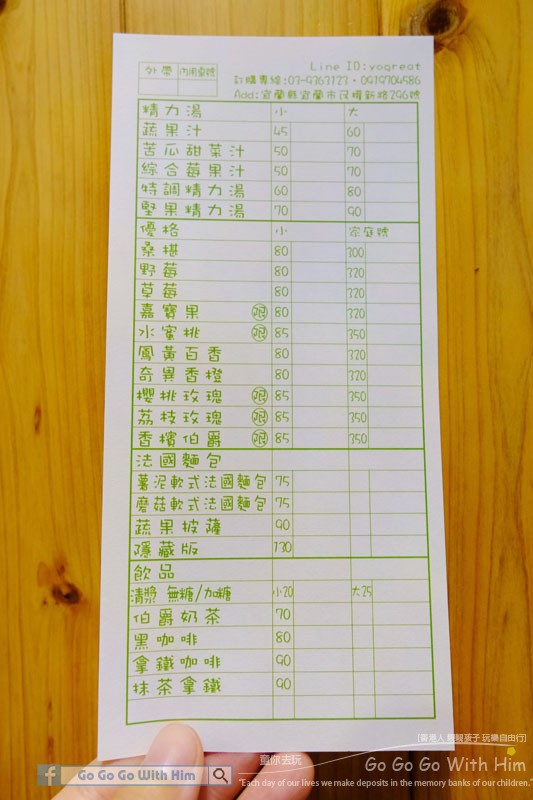 外帶 內用桌號
Line ID:yogreat
訂購專線:03-9363123‧0919704586
Add:宜蘭縣宜蘭市民權新路296號
精力湯 小 大
蔬果汁 45 60
苦瓜甜菜汁 50 70
綜合莓果汁 50 70
特調精力湯 60 80
堅果精力湯 70 90
優格 小 家庭號
桑椹 80 300
野莓 80 320
草莓 80 320
嘉寶果 限 80 320
水蜜桃 限 85 350
鳳黃百香 80 320
奇異香橙 80 320
櫻桃玫瑰 限 85 350
荔枝玫瑰 限 85 350
香檳伯爵 限 85 350
法國麵包
薯泥軟式法國麵包 75
蘑菇軟式法國麵包 75
蔬果披薩 90
隱藏版 130
飲品
清漿 無糖/加糖 小20 大25
伯爵奶茶 70
黑咖啡 80
拿鐵咖啡 90
抹茶拿鐵 90
f Go Go Go With Him
童你去玩
Go Go Go With Him
"Each day of our lives we make deposits in the memory banks of our children."